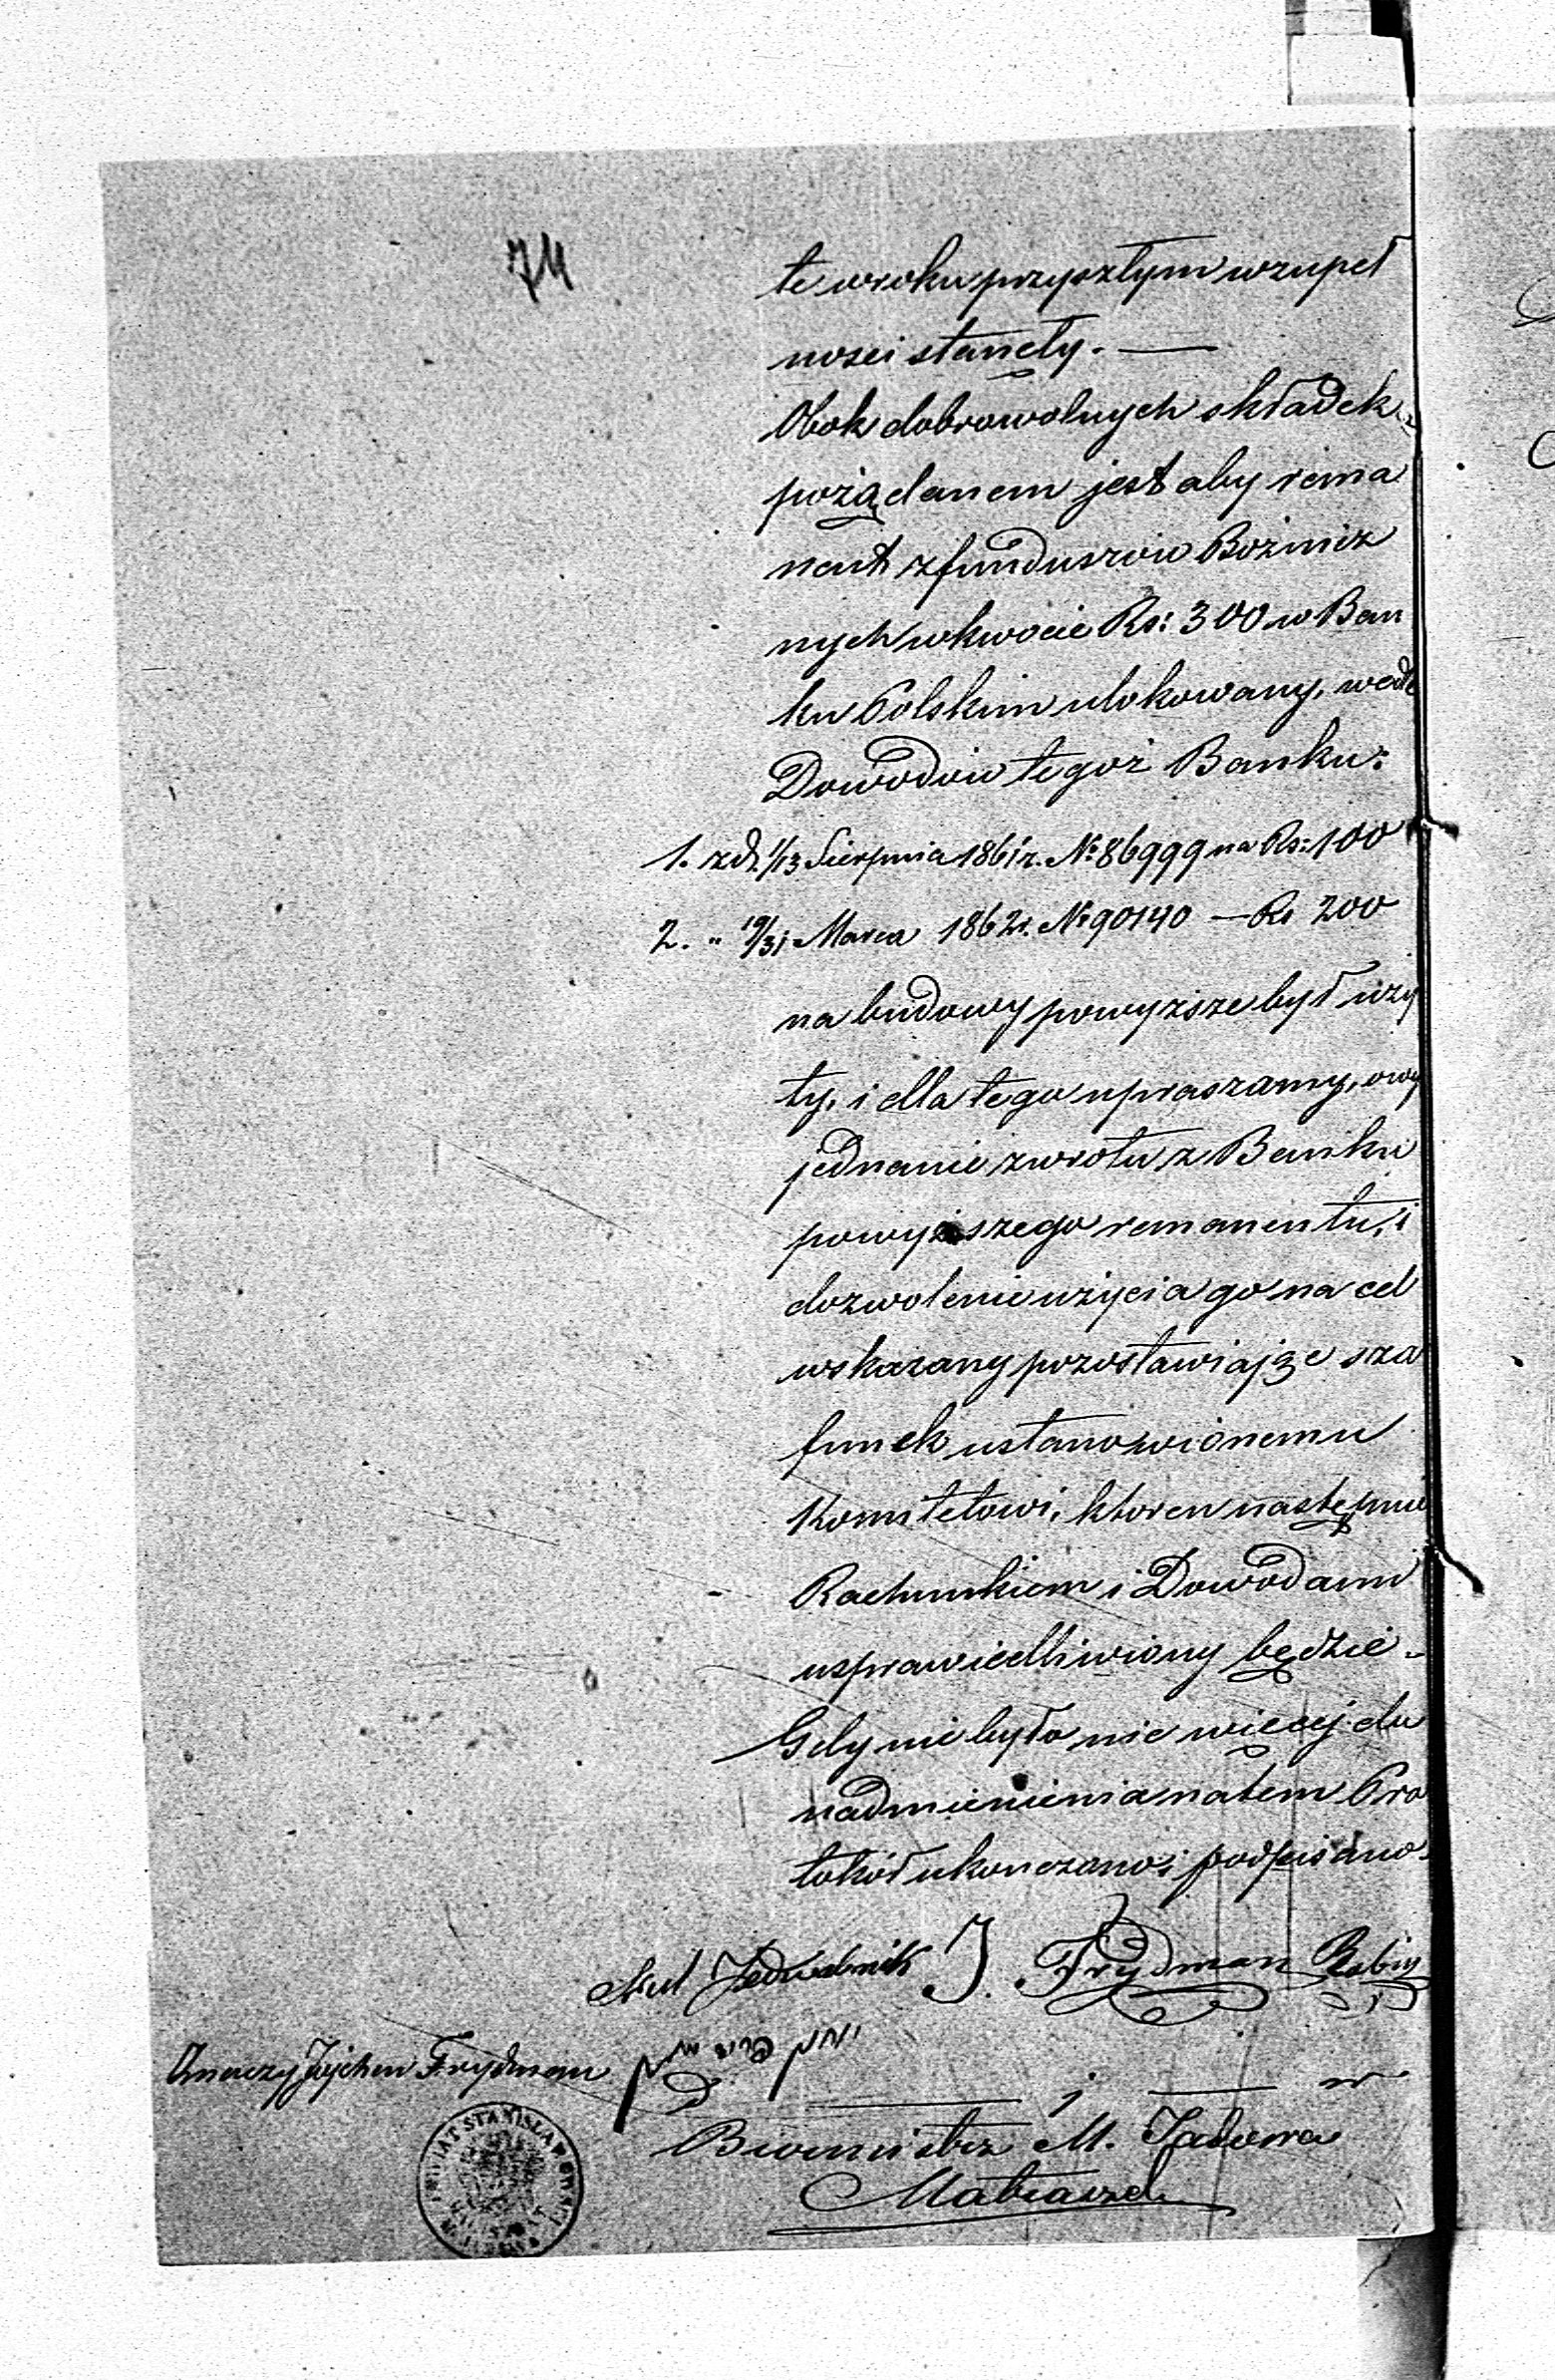 74
te w roku przyszłym w zupeł
ności stanęły. —
Obok dobrowolnych składek
pożądanem jest aby rema
nent z funduszów Bóżnicz
nych w kwocie Rs: 300 w Ban
ku Polskim ulokowany, wedle
Dowodów tegoż Banku:
1. z d. 1/13 Sierpnia 1861 r. № 86999 na Rs: 100
2. „ 19/31 Marca 1862 r. № 90140 — Rs 200
na budowy powyższe był uży
ty, i dla tego upraszamy, o wy
jednanie zwrotu z Banku
powyższego remanentu, i
dozwolenie użycia go na cel
wskazany pozostawiając sza
funek ustanowionemu
Komitetowi, któren następnie
Rachunkiem i Dowodami
usprawiedliwiony będzie.
Gdy nie było nic więcej do
nadmienienia na tem Pro
tokół ukończono i podpisano.
Jedwabnik J. Frydman Rabin
Frydman
Burmistrz M. Tadowa